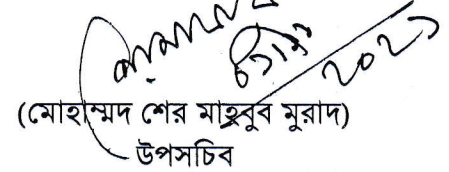 ২০২১
(মোহাম্মদ শের মাহবুব মুরাদ)
উপসচিব